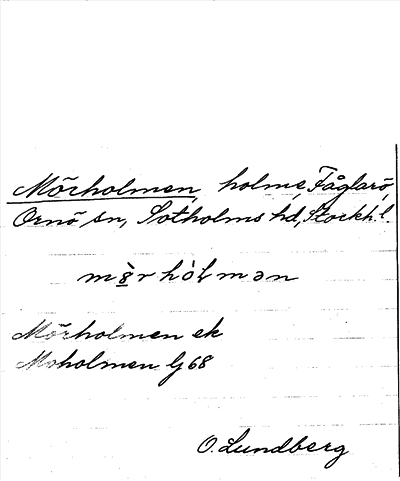 Mörholmen, holme, Fåglarö,
Ornö sn, Sotholms hd, Stockh. l.
mö̀rhòlmən
Mörholmen ek
Moholmen Lj 68
O. Lundberg